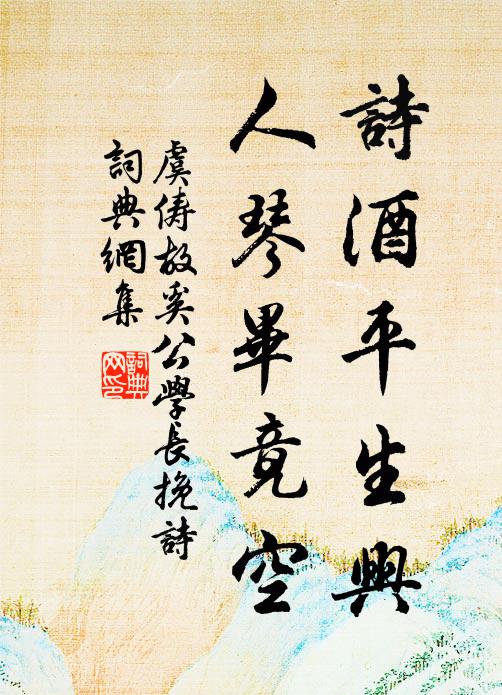 詩酒平生興
人琴畢竟空
虞儔故奚公學長挽詩
詞典網集
詞典網印